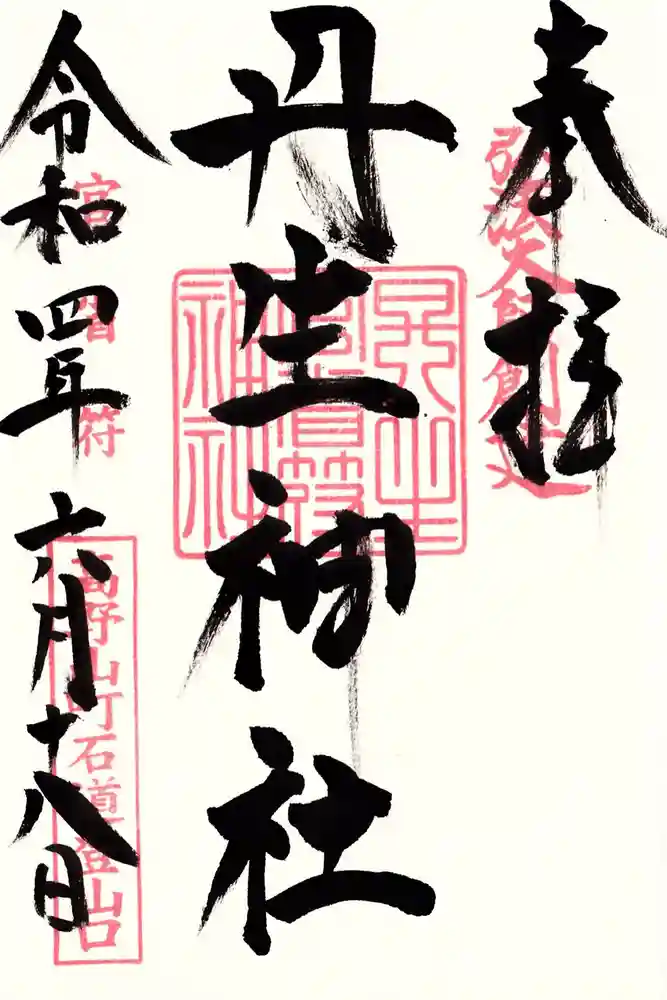 奉拝
弘法大師創建
丹生神社
丹生
官省符
神社
令和四年六月十八日
官省符
高野山町石道登山口